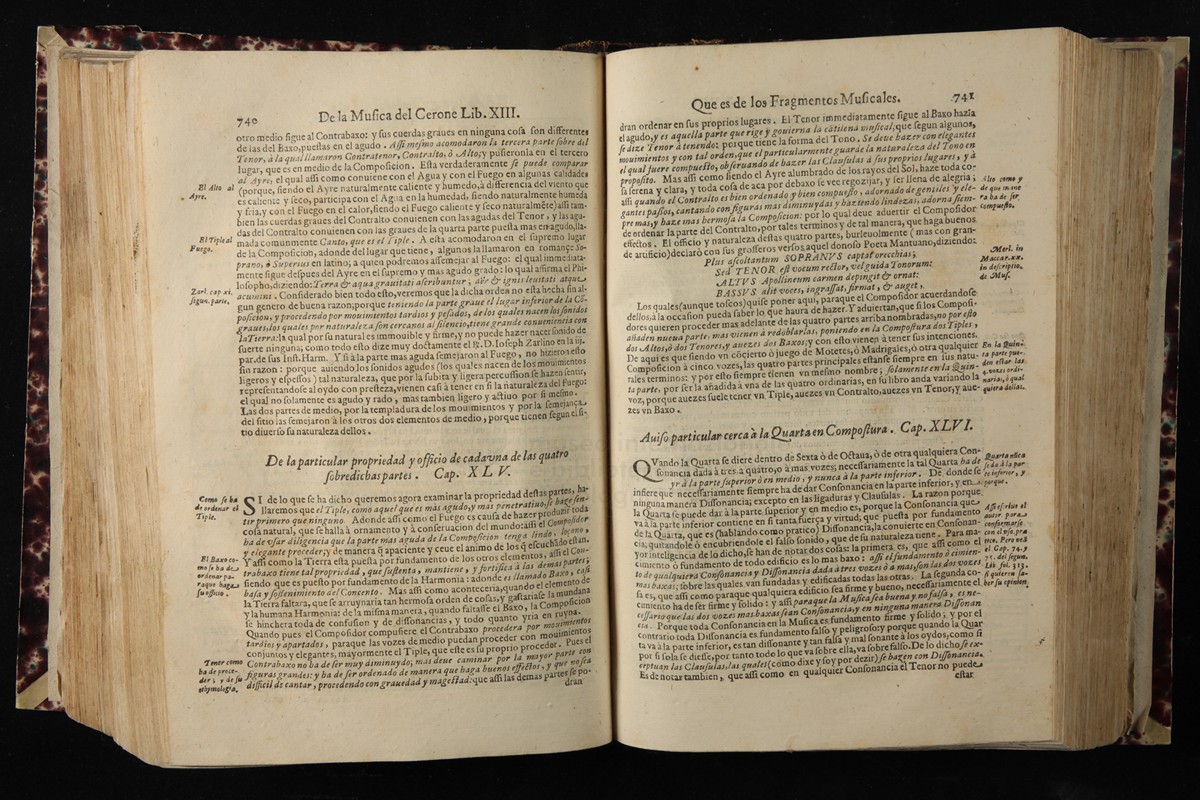 740 De la Musica del Cerone Lib. XIII.
otro medio sigue al Contrabaxo: y sus cuerdas graues en ninguna cosa son differentes
de las del Baxo, puestas en el agudo. Assi mesmo acomodaron la tercera parte sobre del
Tenor, à la qual llamaron Contratenor, Contralto, ò Alto; y pusieronla en el tercero
lugar, que es en medio de la Composicion. Esta verdaderamente se puede comparar
al Ayre, el qual assi como conuiene con el Agua y con el Fuego en algunas calidades
(porque, siendo el Ayre naturalmente caliente y humedo, à differencia del viento que
es caliente y seco, participa con el Agua en la humedad, siendo naturalmente humeda
y fria, y con el Fuego en el calor, siendo el Fuego caliente y seco naturalmẽte) assi tam-
bien las cuerdas graues del Contralto conuienen con las agudas del Tenor, y las agu-
das del Contralto conuienen con las graues de la quarta parte puesta mas en agudo, lla-
mada comunmente Canto, que es el Tiple. A esta acomodaron en el supremo lugar
de la Composicion, adonde del lugar que tiene, algunos la llamaron en romançe So-
prano, ò Superius en latino; a quien podremos assemejar al Fuego: el qual immediata-
mente sigue despues del Ayre en el supremo y mas agudo grado: lo qual affirma el Phi-
losopho, diziendo: Terra & aqua grauitati ascribuntur; aër & ignis leuitati atque
acumini. Considerado bien todo esto, veremos que la dicha orden no esta hecha sin al-
gun genero de buena razon; porque teniendo la parte graue el lugar inferior de la Cõ-
posicion, y procediendo por mouimientos tardios y pesados, de los quales nacen los sonidos
graues, los quales por naturaleza son cercanos al silencio, tiene grande conueniencia con
la Tierra: la qual por su natural es immouible y firme, y no puede hazer nacer sonido de
suerte ninguna; como todo esto dize muy doctamente el R. D. Ioseph Zarlino en la iij.
par. de sus Inst. Harm. Y si à la parte mas aguda semejaron al Fuego, no hizieron esto
sin razon: porque auiendo los sonidos agudos (los quales nacen de los mouimientos
ligeros y espessos) tal naturaleza, que por la subita y ligera percussion se hazen sentir,
representandose al oydo con presteza, vienen casi à tener en si la naturaleza del Fuego:
el qual no solamente es agudo y rado, mas tambien ligero y actiuo por si mesmo.
Las dos partes de medio, por la templadura de los mouimientos y por la semejança
del sitio las semejaron à los otros dos elementos de medio, porque tienen segun el si-
tio diuerso su naturaleza dellos.
El Alto al
Ayre.
El Tiple al
Fuego.
Zarl. cap xi.
sigun. parte.
De la particular propriedad y officio de cadavna de las quatro
sobredichas partes. Cap. XLV.
SI de lo que se ha dicho queremos agora examinar la propriedad destas partes, ha-
llaremos que el Tiple, como aquel que es mas agudo, y mas penetratiuo, se haze sen-
tir primero que ninguno. Adonde assi como el Fuego es causa de hazer produzir toda
cosa natural, que se halla à ornamento y à conseruacion del mundo: assi el Composidor
ha de vsar diligencia que la parte mas aguda de la Composicion tenga lindo, loçano,
y elegante proceder; y de manera q̃ apaciente y ceue el animo de los q̃ escuchãdo estan.
Y assi como la Tierra esta puesta por fundamento de los otros elementos, assi el Con-
trabaxo tiene tal propriedad, que sustenta, mantiene, y fortifica à las demas partes;
siendo que es puesto por fundamento de la Harmonia: adonde es llamado Baxo, casi
basa y sostenimento del Concento. Mas assi como aconteceria, quando el elemento de
la Tierra faltara, que se arruynaria tan hermosa orden de cosas, y gastariase la mundana
y la humana Harmonia: de la misma manera, quando faltasse el Baxo, la Composicion
se hinchera toda de confusion y de dissonancias, y todo quanto yria en ruyna.
Quando pues el Composidor compusiere el Contrabaxo procedera por mouimentos
tardios y apartados, paraque las vozes de medio puedan proceder con mouimientos
conjuntos y elegantes, mayormente el Tiple, que este es su proprio proceder. Pues el
Contrabaxo no ha de ser muy diminuydo; mas deue caminar por la mayor parte con
figuras grandes: y ha de ser ordenado de manera que haga buenos effectos, y que no sea
difficil de cantar, procediendo con grauedad y magestad: que assi las demas partes se po-
dran
Como se ha
de ordenar el
Tiple.
El Baxo co-
mo se ha de
ordenar pa-
raque haga
su officio.
Tenor como
ha de proce-
der; y de su
ethymologia.
Que es de los Fragmentos Musicales. 741
dran ordenar en sus proprios lugares. El Tenor immediatamente sigue al Baxo hazia
el agudo, y es aquella parte que rige y gouierna la cãtilena musical; que segun algunos,
se dize Tenor à tenendo: porque tiene la forma del Tono. Se deue hazer con elegantes
mouimientos y con tal orden, que el particularmente guarde la naturaleza del Tono en
el qual fuere compuesto, obseruando de hazer las Clausulas à sus proprios lugares, y à
proposito. Mas assi como siendo el Ayre alumbrado de los rayos del Sol, haze toda co-
sa serena y clara, y toda cosa de aca por debaxo se vee regozijar, y ser llena de alegria;
assi quando el Contralto es bien ordenado y bien compuesto, adornado de gentiles y ele-
gantes passos, cantando con figuras mas diminuydas y haziendo lindezas, adorna siem-
pre mas, y haze mas hermosa la Composicion: por lo qual deue aduertir el Composidor
de ordenar la parte del Contralto, por tales terminos y de tal manera, que haga buenos
effectos. El officio y naturaleza destas quatro partes, burleuolmente (mas con gran-
de artificio) declarò con sus grosseros versos, aquel donoso Poeta Mantuano, diziendo:
Plus ascoltantum SOPRANVS captat orecchias;
Sed TENOR est vocum rector, vel guida Tonorum:
ALTVS Apollineum carmen depingit & ornat:
BASSVS alit voces, ingrassat, firmat, & auget.
Los quales (aunque toscos) quise poner aqui, paraque el Composidor acuerdandose
dellos, à la occasion pueda saber lo que haura de hazer. Y aduiertan, que si los Composi-
dores quieren proceder mas adelante de las quatro partes arriba nombradas, no por esto
añaden nueua parte, mas vienen à redoblarlas, poniendo en la Compostura dos Tiples,
dos Altos, ò dos Tenores, y auezes dos Baxos; y con esto vienen à tener sus intenciones.
De aqui es que siendo vn cõcierto ò juego de Motetes, ò Madrigales, ò otra qualquier
Composicion à cinco vozes, las quatro partes principales estanse siempre en sus natu-
rales terminos: y por esto siempre tienen vn mesmo nombre; solamente en la Quin-
ta parte, por ser la añadida à vna de las quatro ordinarias, en su libro anda variando la
voz, porque auezes suele tener vn Tiple, auezes vn Contralto, auezes vn Tenor, y aue-
zes vn Baxo.
Alto como y
de que mane
ra ha de ser
compuesto.
Merl. in
Maccar. xx.
in descriptio.
de Mus.
En la Quin-
ta parte pue-
den estar las
4. vozes ordi-
narias, ò qual
quiera dellas.
Auiso particular cerca à la Quarta en Compostura. Cap. XLVI.
QVando la Quarta se diere dentro de Sexta ò de Octaua, ò de otra qualquiera Con-
sonancia dada à tres, a quatro, o à mas vozes; necessariamente la tal Quarta ha de
yr à la parte superior ò en medio, y nunca à la parte inferior. De donde se
infiere que necessariamente siempre ha de dar Consonancia en la parte inferior, y en
ninguna manera Dissonancia; excepto en las ligaduras y Clausulas. La razon porque
la Quarta se puede dar à la parte superior y en medio es, porque la Consonancia que
va à la parte inferior contiene en si tanta fuerça y virtud, que puesta por fundamento
de la Quarta, que es (hablando como pratico) Dissonancia, la conuierte en Consonan-
cia, quitandole ò encubriendole el falso sonido, que de su naturaleza tiene. Para ma-
yor inteligencia de lo dicho, se han de notar dos cosas: la primera es, que assi como el
cimiento ò fundamento de todo edificio es lo mas baxo: assi el fundamento ò cimien-
to de qualquiera Consonancia y Dissonancia dada à tres vozes ò a mas, son las dos vozes
mas baxas; sobre las quales van fundadas y edificadas todas las otras. La segunda co-
sa es, que assi como paraque qualquiera edificio sea firme y bueno, necessariamente el
cimiento ha de ser firme y solido: y assi paraque la Musica sea buena y no falsa, es ne-
cessario que las dos vozes mas baxas sean Consonancia, y en ninguna manera Dissonan
cia. Porque toda Consonancia en la Musica es fundamento firme y solido; y por el
contratio toda Dissonancia es fundamento falso y peligroso: y porque quando la Quar
ta va à la parte inferior, es tan dissonante y tan falsa y mal sonante à los oydos, como si
por si sola se diesse, por tanto todo lo que va sobre ella, va sobre falso. De lo dicho se ex-
ceptuan las Clausulas, las quales (como dixe y soy por dezir) se hazen con Dissonancia.
Es de notar tambien, que assi como en qualquier Consonancia el Tenor no puede
estar
Quarta nũca
se da à la par-
te inferior, y
porque.
Assi escriue el
autor para
conformarse
con el vso. pra
tico. Pero vea
el Cap. 74. y
75. del segun.
Lib. fol. 313.
si quieren sa-
ber su opinion.